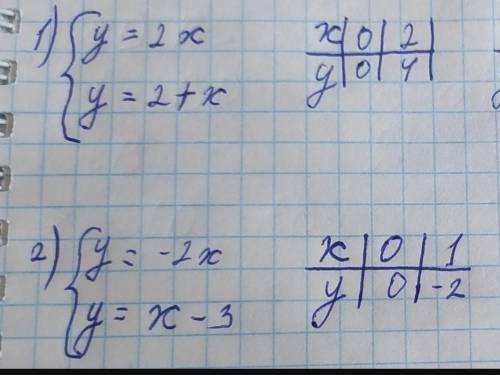 1) { y = 2x
y = 2 + x
x | 0 | 2
y | 0 | 4
2) { y = -2x
y = x - 3
x | 0 | 1
y | 0 | -2